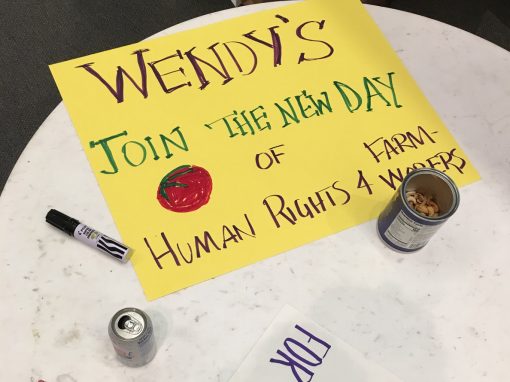 WENDY'S
JOIN THE NEW DAY
OF FARM-
HUMAN RIGHTS 4 WORERS
FOR